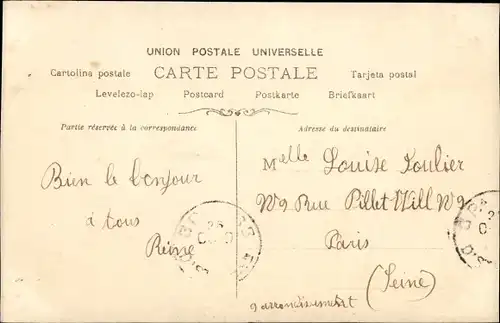 UNION POSTALE UNIVERSELLE
Cartolina postale CARTE POSTALE Tarjeta postal
Levelezo-lap Postcard Postkarte Briefkaart
Partie réservée à la correspondance
Bien le bonjour
à tous
Reine
Adresse du destinataire
Melle Louise Toulier
No 9 Rue Pillet-Will No 9
Paris
(Seine)
9 arrondissement